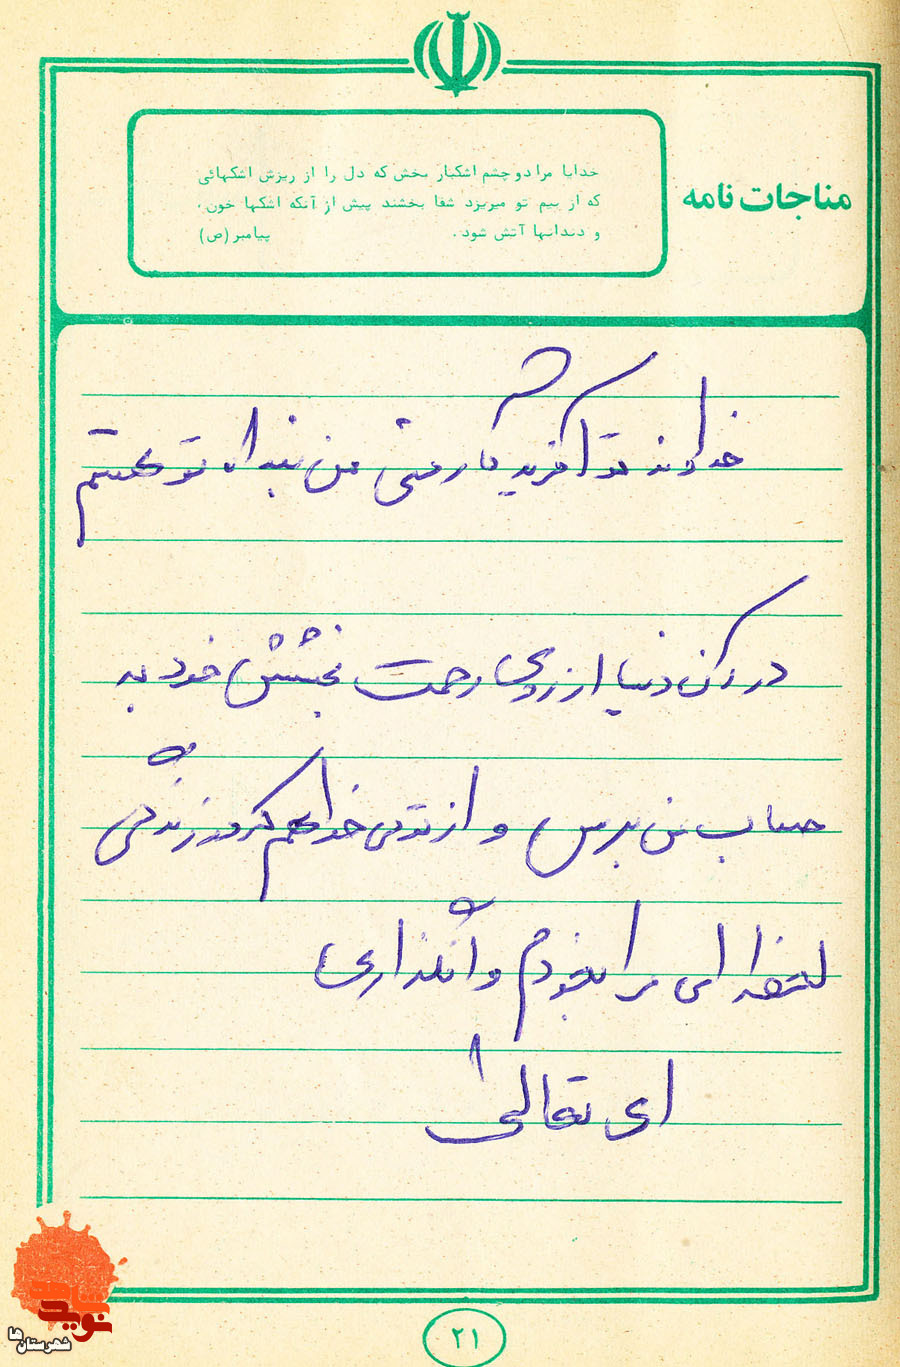 مناجات نامه
خدایا مرا دو چشم اشکبار بخش که دل را از ریزش اشکهائی
که از بیم تو میریزد شفا بخشند پیش از آنکه اشکها خون،
و دندانها آتش شود. پیامبر (ص)
خداوند تو آفریدگار منی من بنده تو هستم
در این دنیا از روی رحمت بخشش خود به
حساب من برس و از تو می خواهم که در زندگی
لحظه ای مرا بخودم وانگذاری
ای تعالی
۲۱
نوید شاهد
شهرستان ها